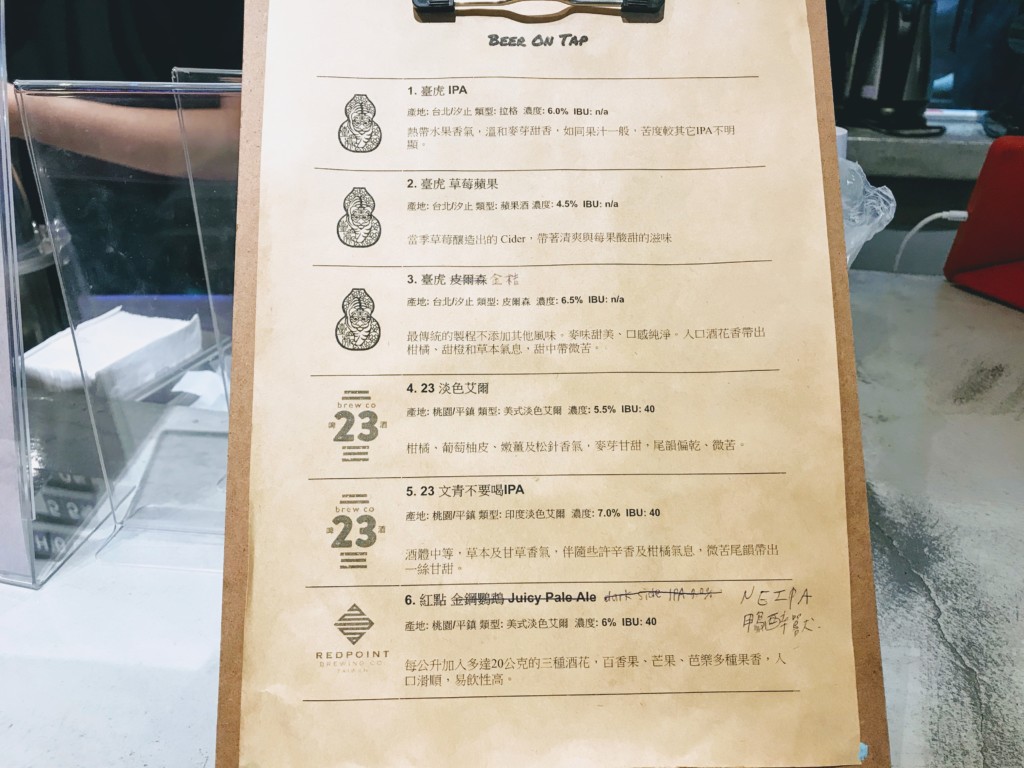 BEER ON TAP
1. 臺虎 IPA
產地: 台北/汐止 類型: 拉格 濃度: 6.0% IBU: n/a
熱帶水果香氣，溫和麥芽甜香，如同果汁一般，苦度較其它IPA不明
顯。
2. 臺虎 草莓蘋果
產地: 台北/汐止 類型: 蘋果酒 濃度: 4.5% IBU: n/a
當季草莓釀造出的 Cider，帶著清爽與莓果酸甜的滋味
3. 臺虎 皮爾森
產地: 台北/汐止 類型: 皮爾森 濃度: 6.5% IBU: n/a
最傳統的製程不添加其他風味。麥味甜美、口感純淨。入口酒花香帶出
柑橘、甜橙和草本氣息，甜中帶微苦。
brew co
啤 23 酒
4. 23 淡色艾爾
產地: 桃園/平鎮 類型: 美式淡色艾爾 濃度: 5.5% IBU: 40
柑橘、葡萄柚皮、嫩薑及松針香氣，麥芽甘甜，尾韻偏乾、微苦。
brew co
啤 23 酒
5. 23 文青不要喝IPA
產地: 桃園/平鎮 類型: 印度淡色艾爾 濃度: 7.0% IBU: 40
酒體中等，草本及甘草香氣，伴隨些許辛香及柑橘氣息，微苦尾韻帶出
一絲甘甜。
REDPOINT
BREWING CO
TAIWAN
6. 紅點 金鋼鸚鵡 Juicy Pale Ale dark side IPA NEIPA
產地: 桃園/平鎮 類型: 美式淡色艾爾 濃度: 6% IBU: 40
每公升加入多達20公克的三種酒花，百香果、芒果、芭樂多種果香，入
口滑順，易飲性高。